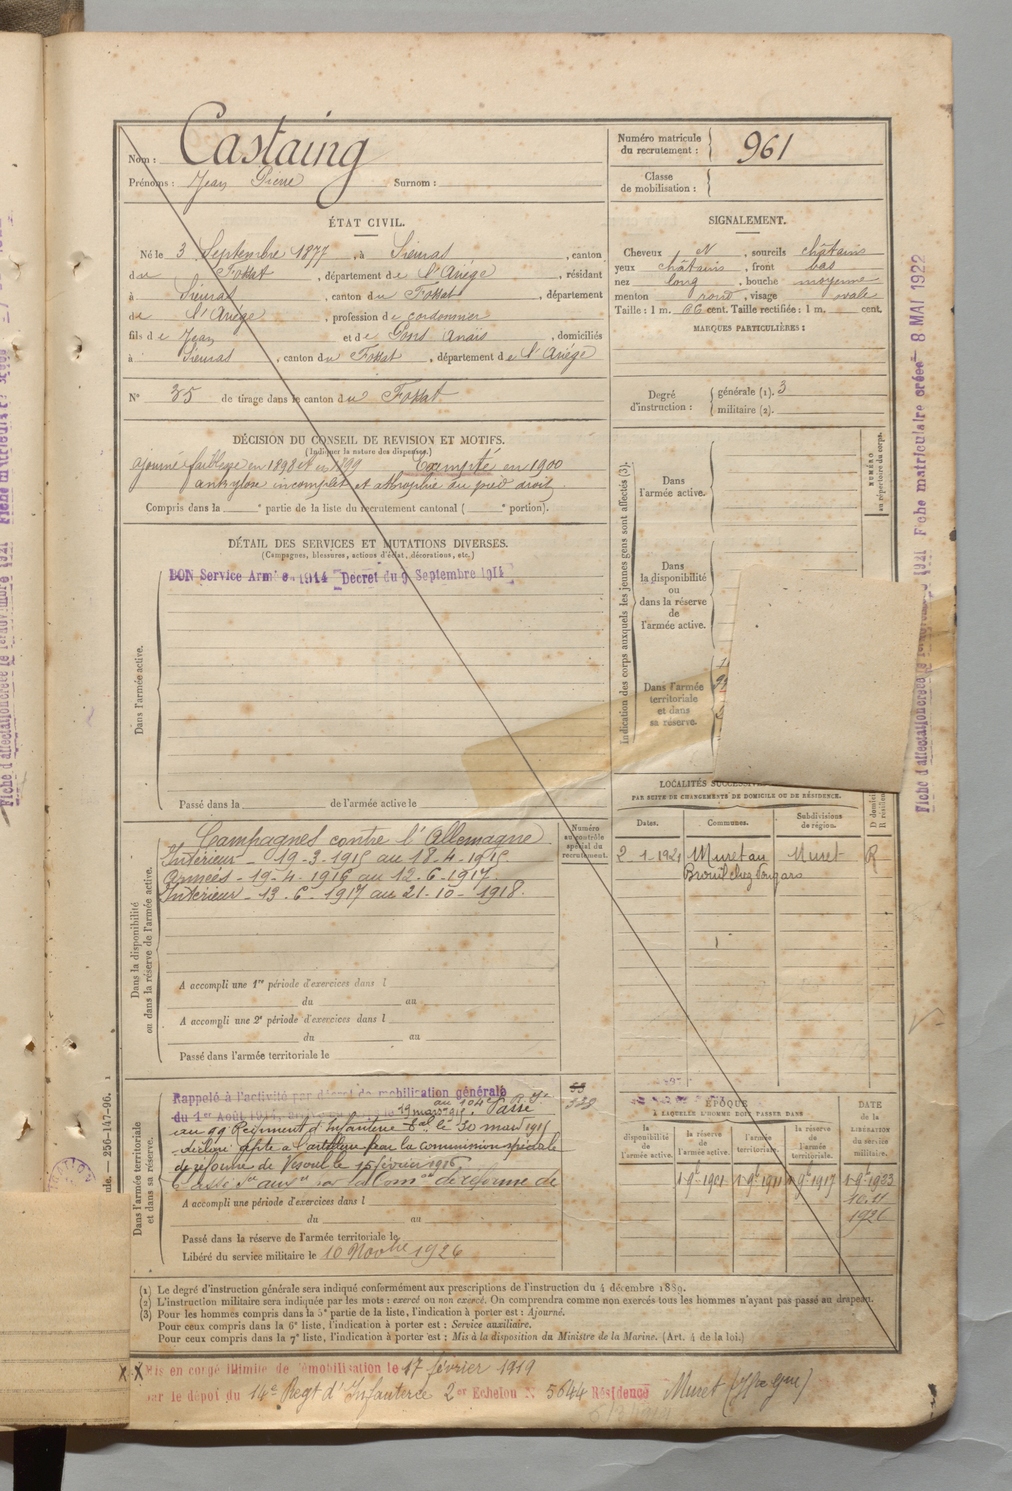 Nom : Castaing
Prénoms : Jean Pierre Surnom :
Numéro matricule du recrutement : 961
Classe de mobilisation :
ÉTAT CIVIL.
Né le 3 Septembre 1877, à Sieuras, canton
du Fossat, département de l'Ariège, résidant
à Sieuras, canton du Fossat, département
de l'Ariège, profession de cordonnier
fils de Jean et de Pons Anaïs, domiciliés
à Sieuras, canton du Fossat, département de l'Ariège
N° 35 de tirage dans le canton du Fossat
SIGNALEMENT.
Cheveux N, sourcils châtains
yeux châtains, front bas
nez long, bouche moyenne
menton rond, visage ovale
Taille : 1 m. 66 cent. Taille rectifiée : 1 m. cent.
MARQUES PARTICULIÈRES :
Degré d'instruction : générale (1). 3
militaire (2).
DÉCISION DU CONSEIL DE REVISION ET MOTIFS.
(Indiquer la nature des dispenses.)
ajourné faiblesse en 1898 et en 1899 Exempté en 1900
ankylose incomplète et atrophie du pied droit
Compris dans la e partie de la liste du recrutement cantonal ( e portion).
DÉTAIL DES SERVICES ET MUTATIONS DIVERSES.
(Campagnes, blessures, actions d'éclat, décorations, etc.)
Dans l'armée active.
BON Service Armé 1914 Decret du 9 Septembre 1914
Passé dans la de l'armée active le
Indication des corps auxquels les jeunes gens sont affectés (3).
Dans l'armée active.
Dans la disponibilité ou dans la réserve de l'armée active.
Dans l'armée territoriale et dans sa réserve.
NUMÉRO au répertoire du corps.
Dans la disponibilité ou dans la réserve de l'armée active.
Campagnes contre l'Allemagne
Intérieur - 19-3-1915 au 18-4-1915
Armées - 19-4-1916 au 12-6-1917.
Intérieur - 13-6-1917 au 21-10-1918.
A accompli une 1re période d'exercices dans l
du au
A accompli une 2e période d'exercices dans l
du au
Passé dans l'armée territoriale le
Numéro au contrôle spécial du recrutement.
53
128
LOCALITÉS SUCCESSIVES
PAR SUITE DE CHANGEMENTS DE DOMICILE OU DE RÉSIDENCE.
Dates. Communes. Subdivisions de région.
2-1-1921 Muret au Muret R
chez
Dans l'armée territoriale et dans sa réserve.
Rappelé à l'activité par décret de mobilisation générale
du 1er Août 1914, le 19 mars 1915. au 104e Passé
au 99 Régiment d'Infanterie le 30 mars 1915
apte à l'artillerie par la commission spéciale
de réforme de Vesoul le 15 février 1916.
de réforme de
A accompli une période d'exercices dans l
du au
Passé dans la réserve de l'armée territoriale le
Libéré du service militaire le 10 Novbre 1926
ÉPOQUE
A LAQUELLE L'HOMME DOIT PASSER DANS
la disponibilité de l'armée active. la réserve de l'armée active. l'armée territoriale. la réserve de l'armée territoriale.
DATE de la LIBÉRATION du service militaire.
1901 1911 1917 1923
1926
(1) Le degré d'instruction générale sera indiqué conformément aux prescriptions de l'instruction du 4 décembre 1889.
(2) L'instruction militaire sera indiquée par les mots : exercé ou non exercé. On comprendra comme non exercés tous les hommes n'ayant pas passé au drapeau.
(3) Pour les hommes compris dans la 5e partie de la liste, l'indication à porter est : Ajourné.
Pour ceux compris dans la 6e liste, l'indication à porter est : Service auxiliaire.
Pour ceux compris dans la 7e liste, l'indication à porter est : Mis à la disposition du Ministre de la Marine. (Art. 4 de la loi.)
Mis en congé illimité de démobilisation le 17 février 1919
par le dépot du 14e Regt d'Infanterie 2er Echelon N° 5644 Résidence Muret (Hte Gne)
Fiche matriculaire créée 8 MAI 1922
256-147-96.